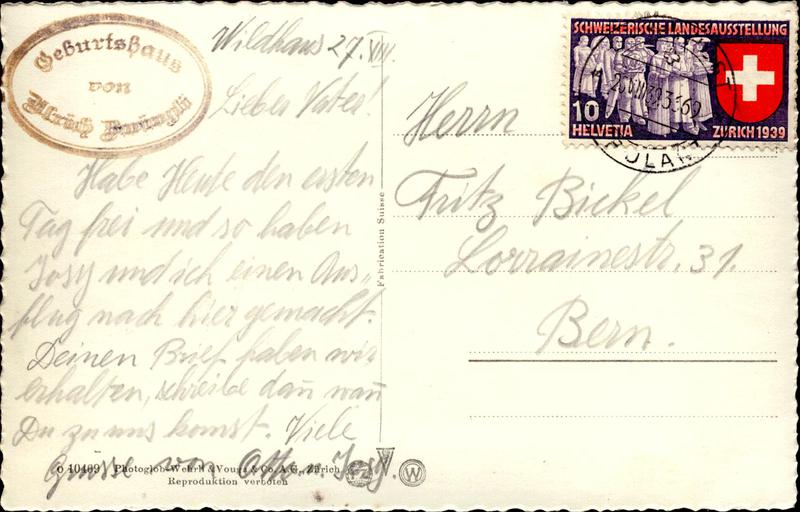 Geburtshaus
von
Ulrich Zwingli
Wildhaus 27. VIII.
Lieber Vater!
Habe Heute den ersten
Tag frei und so haben
Josy und ich einen Aus„
flug nach hier gemacht.
Deinen Brief haben wir
erhalten, schreibe dan wan
Du zu uns komst. Viele
Grüsse von Otto u. Josy.
o 10499 Photoglob-Wehrli & Vouga & Co. A.G., Zürich
Reproduktion verboten
PZ W
Fabrication Suisse
SCHWEIZERISCHE LANDESAUSSTELLUNG
10
HELVETIA ZÜRICH 1939
Herrn
Fritz Bickel
Lorrainestr. 31.
Bern.